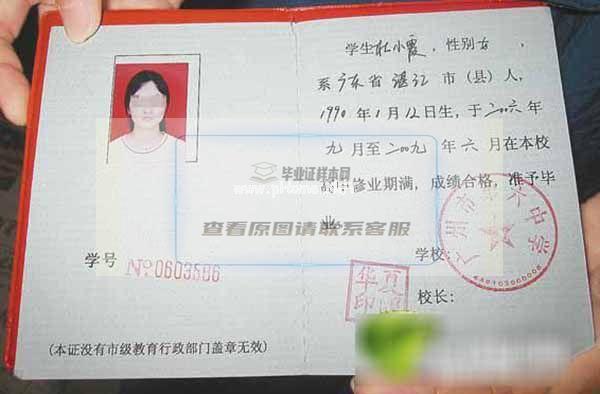 学生杜小霞，性别女，
系广东省湛江市（县）人，
1990年1月12日生，于二00六年
九月至二00九年六月在本校
修业期满，成绩合格，准予毕
业
学校：
校长：
华夏
印
学号 №0603586
（本证没有市级教育行政部门盖章无效）
毕业证样本网
查看原图请联系客服
4401030000008